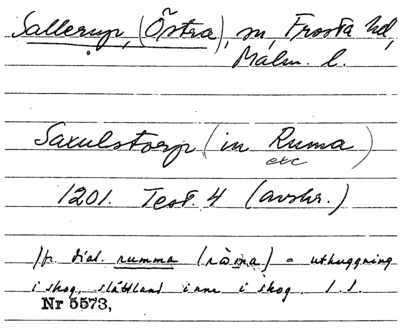 Sallerup, (Östra), sn, Frosta hd,
Malm. l.
Saxulstorp (in Ruma)
etc
1201. Test. 4 (avskr.)
Jfr. dial. rumma (ròma) = uthuggning
i skog, slåttland inne i skog. 1.1.
Nr 5573,